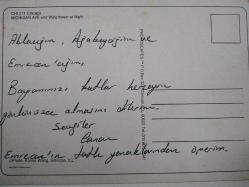 CHI 211 Chicago
MICHIGAN AVE and Watertower at Night
Ablacığım, Ağabeyciğim ve
Emrecan'cığım,
Bayramınızı kutlar herşeyin
gönlünüzce olmasını dilerim.
Sevgiler
Canan
Emrecan'ın tatlı yanaklarından öperim.